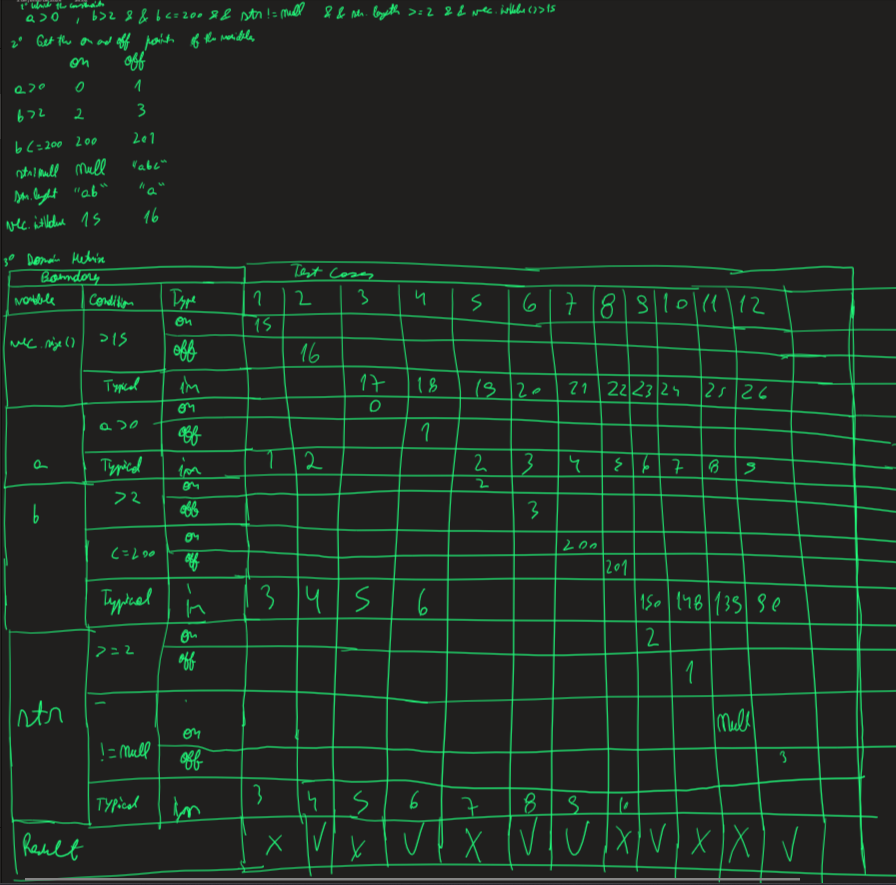 a>0 , b>2 && b<=200 && str != null && str. length >=2 && vec. >15
2° Get the on and off points of the variables
on off
a>0 0 1
b>2 2 3
b<=200 200 201
null null "abc"
"ab" "a"
15 16
3° Domain Matrix
Boundary Test Cases
variable Condition Type 1 2 3 4 5 6 7 8 9 10 11 12
on 15
vec.size() >15
off 16
Typical in 17 18 19 20 21 22 23 24 25 26
on 0
a>0
off 1
a Typical in 1 2 2 3 4 5 6 7 8 9
on 2
>2
b off 3
on 200
<=200
off 201
Typical in 3 4 5 6 150 148 139 90
on 2
>=2
off 1
str
on null
!=null
off 3
Typical in 3 4 5 6 7 8 9 10
Result X V X V X V V X V X X V